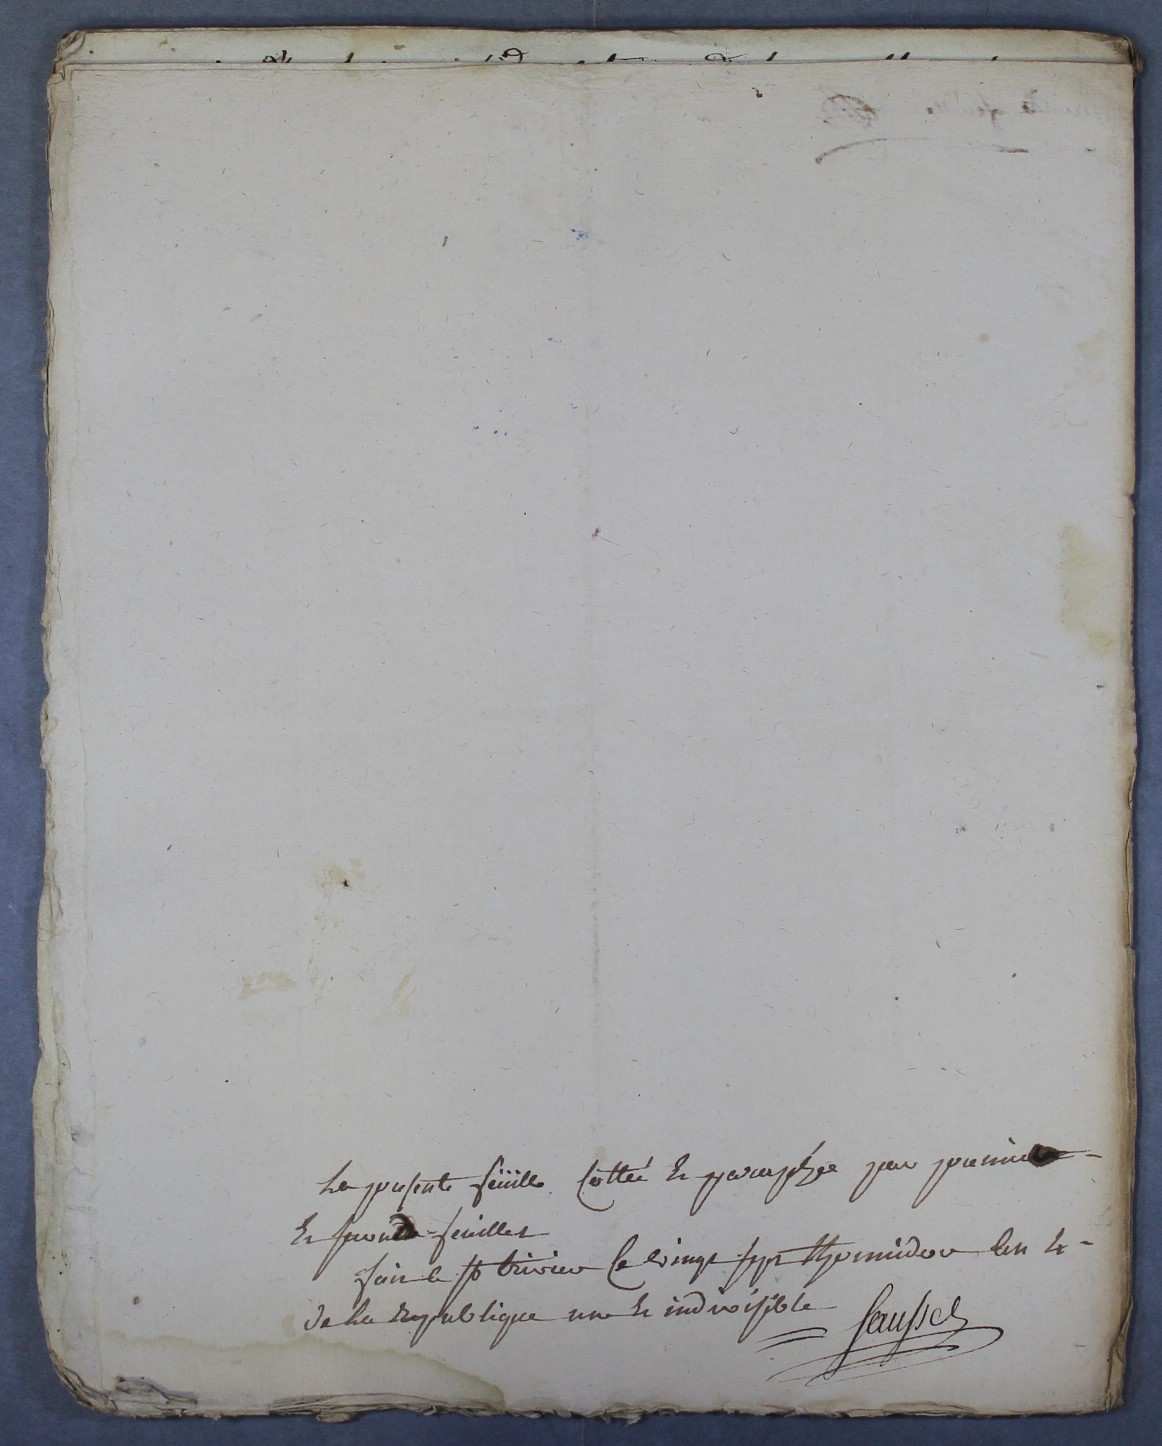 La presente feuille cottée et paraphée par premiere
et seconde feuillet
fait a st trivier le vingt sept thermidor lan
de la republique une et indivisible